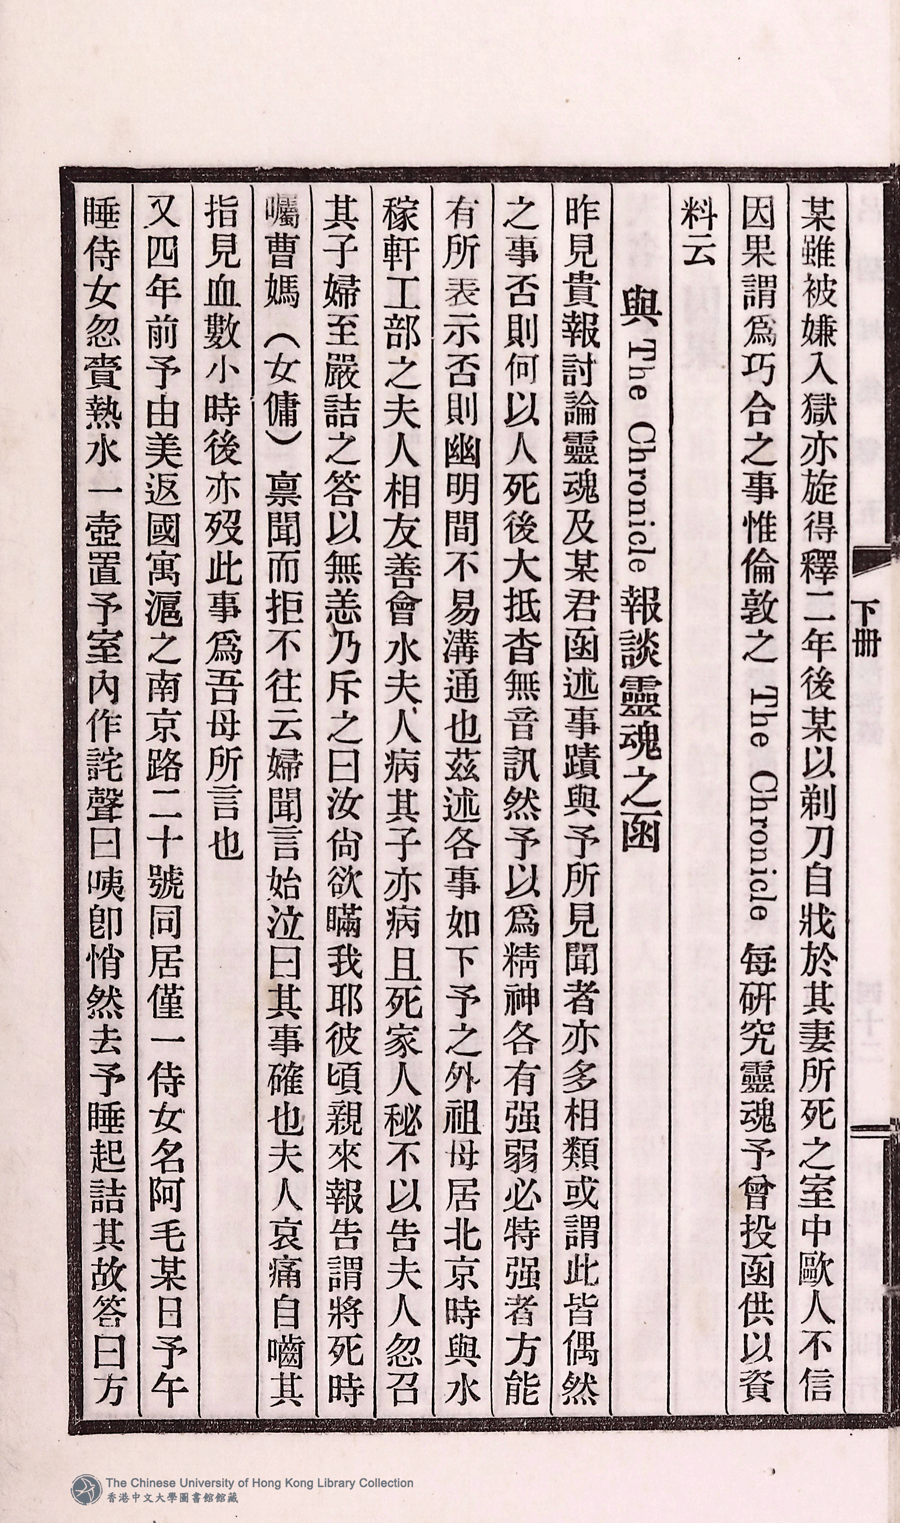 下冊
某雖被嫌入獄亦旋得釋二年後某以剃刀自戕於其妻所死之室中歐人不信
因果謂爲巧合之事惟倫敦之 The Chronicle 每研究靈魂予曾投函供以資
料云
與 The Chronicle 報談靈魂之函
昨見貴報討論靈魂及某君函述事蹟與予所見聞者亦多相類或謂此皆偶然
之事否則何以人死後大抵杳無音訊然予以爲精神各有强弱必特强者方能
有所表示否則幽明間不易溝通也茲述各事如下予之外祖母居北京時與水
稼軒工部之夫人相友善會水夫人病其子亦病且死家人秘不以告夫人忽召
其子婦至嚴詰之答以無恙乃斥之曰汝尙欲瞞我耶彼頃親來報告謂將死時
囑曹媽（女傭）禀聞而拒不往云婦聞言始泣曰其事確也夫人哀痛自嚙其
指見血數小時後亦歿此事爲吾母所言也
又四年前予由美返國寓滬之南京路二十號同居僅一侍女名阿毛某日予午
睡侍女忽賫熱水一壺置予室內作詫聲曰咦卽悄然去予睡起詰其故答曰方
The Chinese University of Hong Kong Library Collection
香港中文大學圖書館館藏